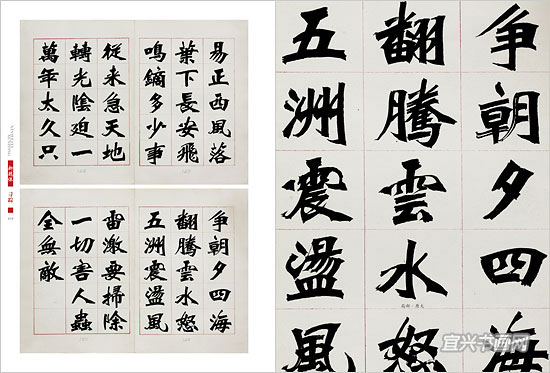 易正西風落
葉下長安飛
鳴鏑多少事
從来急天地
轉光陰迫一
萬年太久只
争朝夕四海
翻騰雲水怒
五洲震盪風
雷激要掃除
一切害人蟲
全無敵
争朝夕四海
翻騰雲水怒
五洲震盪風
宜兴书画网